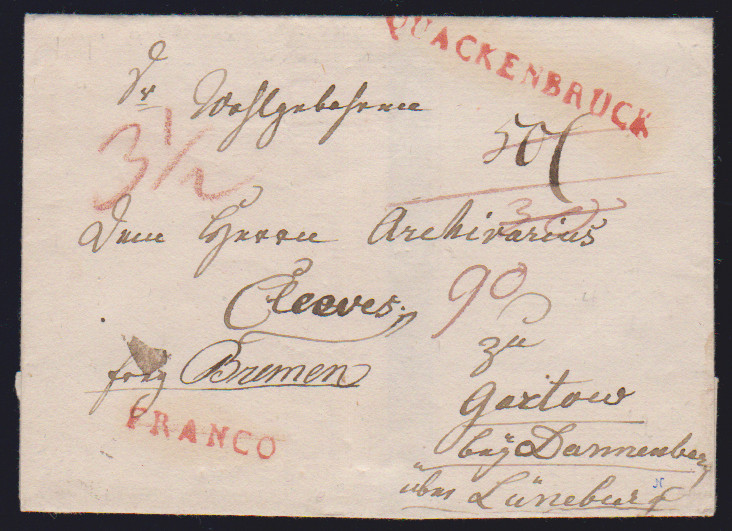 QUACKENBRUCK
Sr Wohlgebohren
3 1/2
50
30
Dem Herrn Archivarius
Cleeves.
90
zu
Bremen
Gartow
FRANCO
bey Dannenberg
über Lüneburg